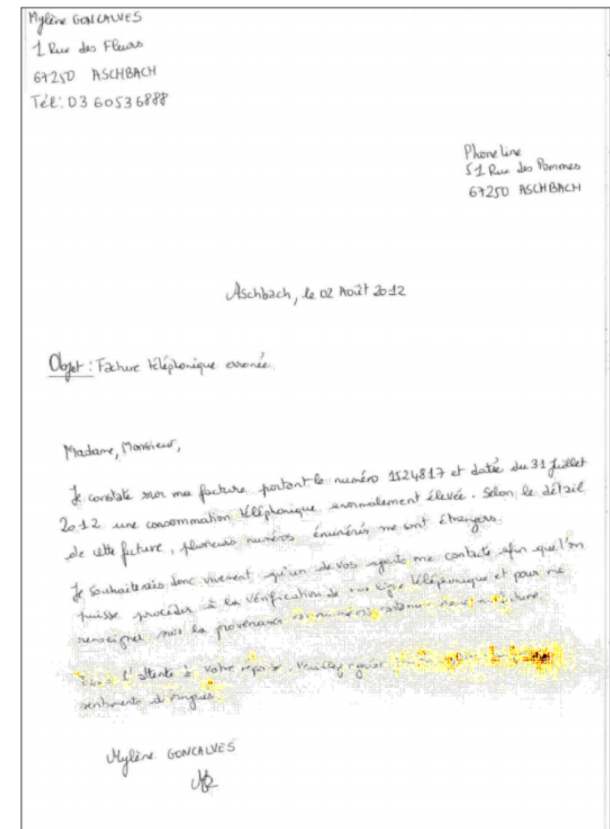 Mylène GONCALVES
1 Rue des Fleurs
67250 ASCHBACH
Tél: 03 60536888
Phoneline
51 Rue des Pommes
67250 ASCHBACH
Aschbach, le 02 Août 2012
Objet : Facture téléphonique erronée.
Madame, Monsieur,
Je constate sur ma facture portant le numéro 1524817 et datée du 31 Juillet
2012 une consommation téléphonique anormalement élevée. Selon le détail
de cette facture, plusieurs numéros énumérés me sont étrangers.
Je souhaiterais donc vivement qu'un de vos agents me contacte afin que l'on
puisse procéder à la vérification de ma ligne téléphonique et pour me
renseigner sur la provenance numéros
l'attente à votre réponse, veuillez
sentiments distingués
Mylène GONCALVES